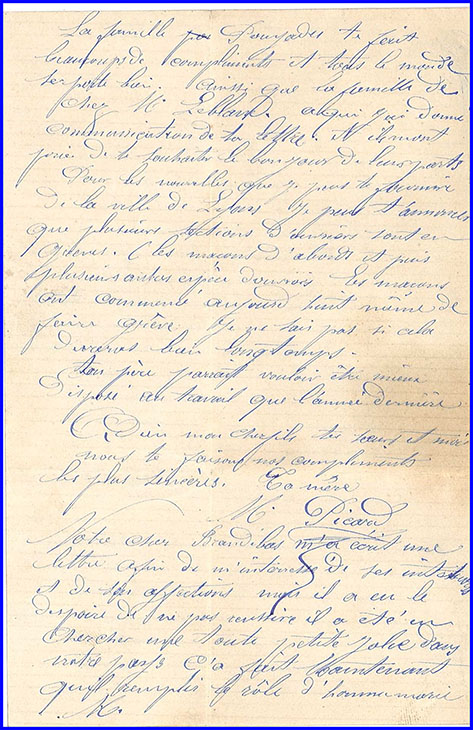 La famille Poujades te fait
beaucoups de compliments et tous le monde
se porte bien. ainsi que la famille de
chez Mr Leblanc. a qui j'ai donné
communication de ta lettre. Et ils m'ont
priée de te souhaiter le bonjour de leurs parts
Pour les nouvelles que je peus te fournire
de la ville de Lyon je peus t'annoncés
que plusieurs d'ouvriers sont en
grèves. (les maçons d'abords et puis
plusieurs autres espèce d'ouvriés les maçons
ont commencé aujourd huit même de
faire grève. Je ne sais pas si cela
dureras bien longtemps.
ton père parrait vouloir être mieux
disposé au travail que l'année dernière
Adieu mon cher fils tes sœurs et
nous te faisons nos compliments
les plus sincères. Ta mère
M. Picard
Notre cher m'a écrit une
lettre afin de m'intéresser de ses
et de ses affections mais il a eu le
despoire de ne pas il a été en
chercher une toute petite Jolie dans
votre pays c'a fait maintenant
qu'il remplis le rôle d'homme marié
M.